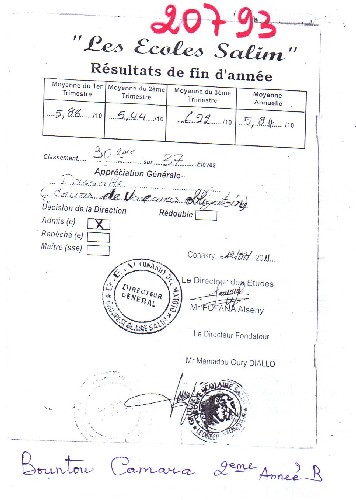 20793
"Les Ecoles Salim"
Résultats de fin d'année
Moyenne du 1er Trimestre Moyenne du 2ème Trimestre Moyenne du 3ème Trimestre Moyenne Annuelle
5,86 /10 5,44 /10 6,22 /10 5,84 /10
Classement 30ème sur 37 Elèves
Appréciation Générale
Passable
Décision de la Direction Redouble
Admis (e) X
Repêché (e)
Maître (sse)
Conakry
Le Directeur des Etudes
DIRECTEUR GENERAL
Mr FOFANA Alseny
Le Directeur Fondateur
Mr Mamadou Oury DIALLO
Bountou Camara 2ème Année B